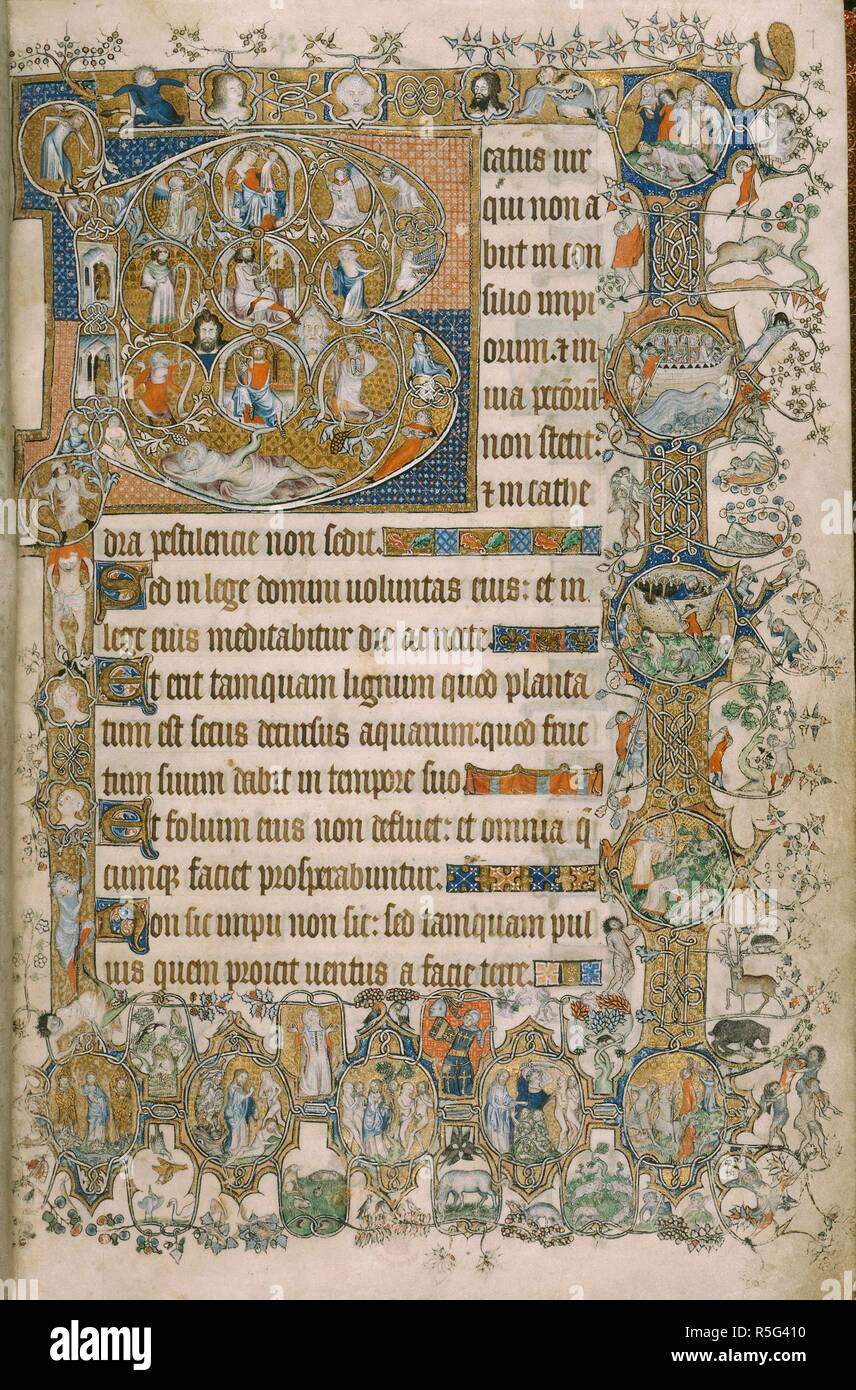 B
eatus uir
qui non a
biit in con
silio impi
orum. ⁊ in
uia peccõrũ
non stetit:
⁊ in cathe
dra pestilencie non sedit.
Sed in lege domini uoluntas eius: et in
lege eius meditabitur die ac nocte.
Et erit tamquam lignum quod planta
tum est secus decursus aquarum: quod fruc
tum suum dabit in tempore suo.
Et folium eius non defluet: et omnia q̃
cumqꝫ faciet prosperabuntur.
Non sic impii non sic: sed tamquam pul
uis quem proicit uentus a facie terre.
alamy
Image ID: R5G410
www.alamy.com